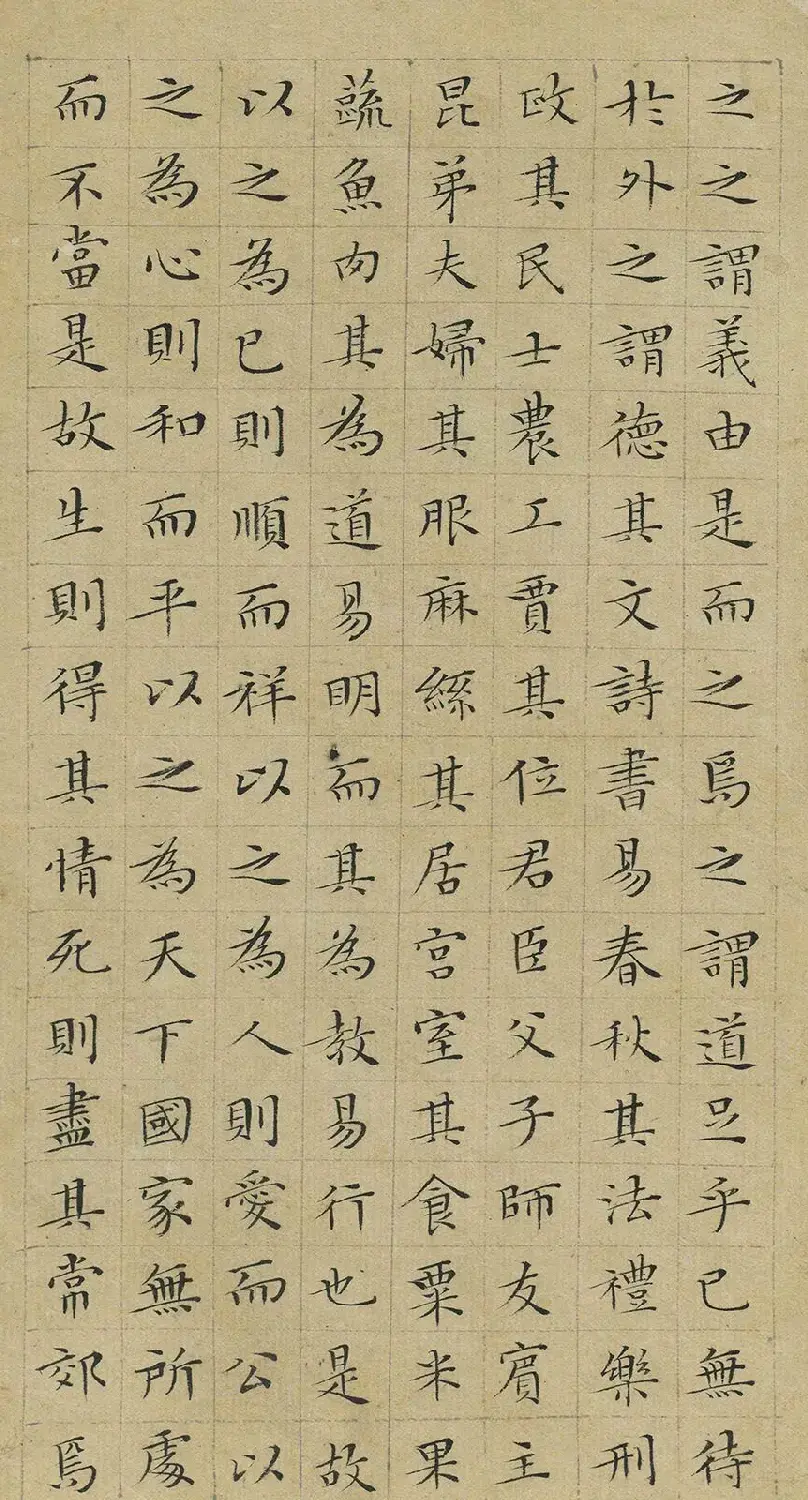 之之謂義由是而之焉之謂道足乎已無待
於外之謂德其文詩書易春秋其法禮樂刑
政其民士農工賈其位君臣父子師友賓主
昆弟夫婦其服麻絲其居宮室其食粟米果
蔬魚肉其為道易明而其為教易行也是故
以之為已則順而祥以之為人則愛而公以
之為心則和而平以之為天下國家無所處
而不當是故生則得其情死則盡其常郊焉